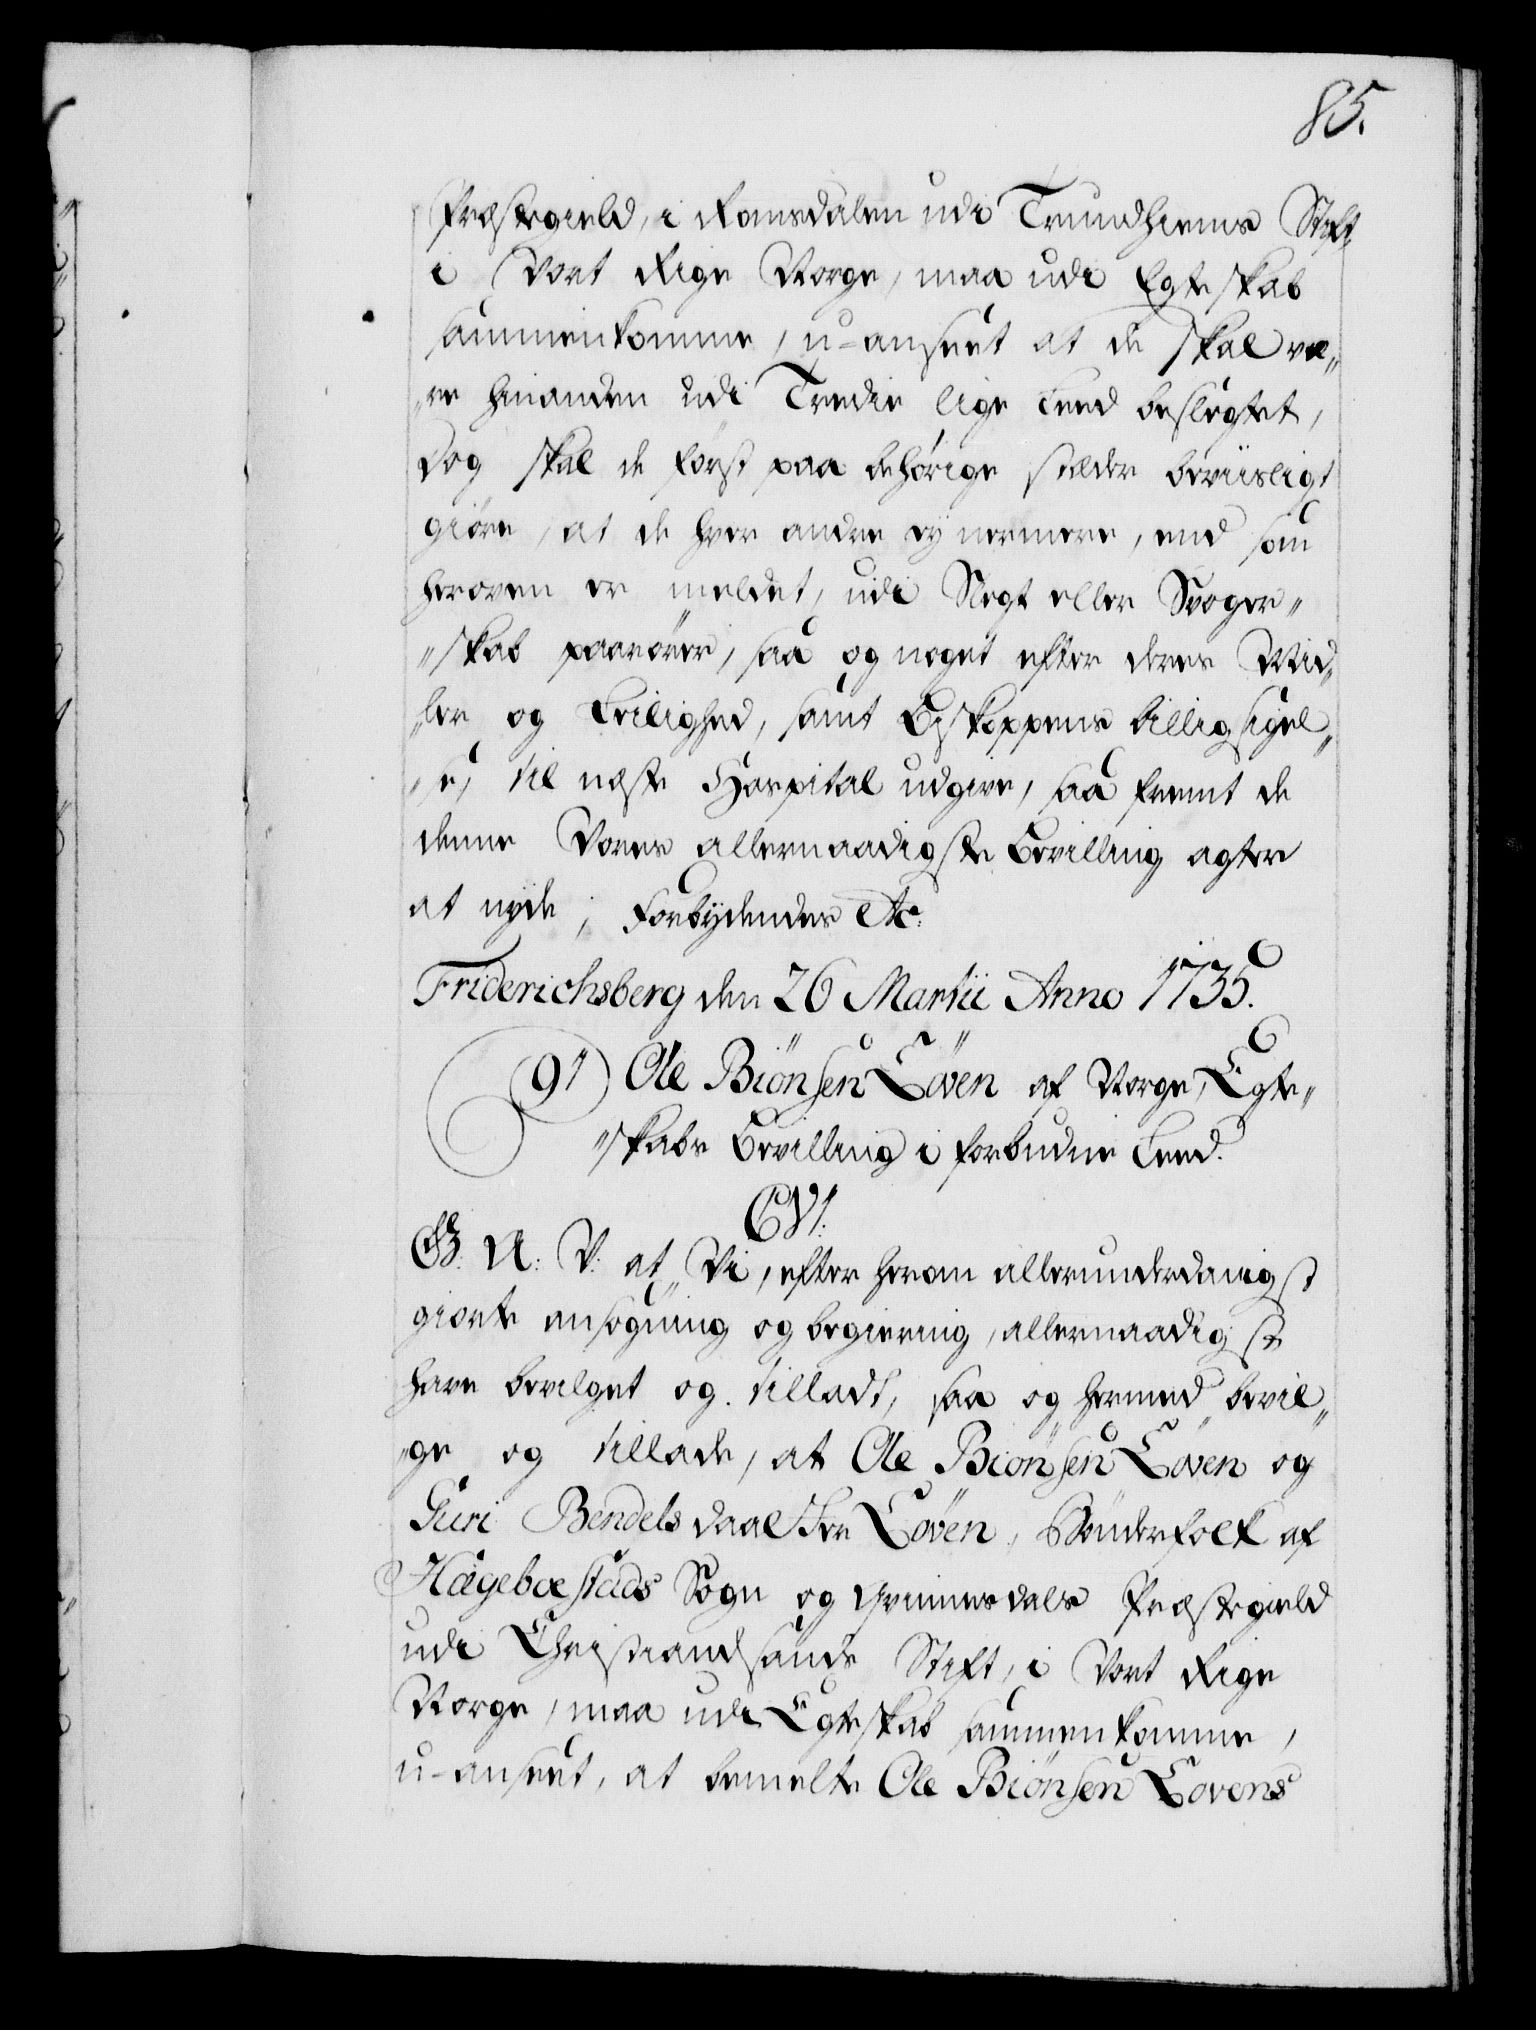 85.
Præstegield, i Romsdalen udi Trundhiems Stift,
i Vort Rige Norge, maa udi Egteskab
sammenkomme, u-anseet at de skal væ„
„re hinanden udi Tredie lige Leed beslægtet,
dog skal de først paa behørige stæder beviisligt
giøre, at de hver andre ey nermere, end som
heroven er meldet, udi Slegt eller Svoger„
„skab paarører, saa og noget efter deres Mid„
„ler og Leilighed, samt Biskoppens billigsigel„
„se, til næste Hospital udgive, saa fremt de
denne Vores allernaadigste Bevilling agter
at nyde; Forbydendes etc:
Friderichsberg den 26 Martii Anno 1735.
91 Ole Biönsen Löven af Norge, Egte„
„skabs Bevilling i forbudne Leed.
C VI.
G: A: V: at Vi, efter herom allerunderdanigst
giorte ansøgning og begiering, allernaadigst
have bevilget og tilladt, saa og hermed bevil„
„ge og tillade, at Ole Biönsen Löven og
Guri Bendels daatter Löven, Bønderfolk af
Hægebostads Sogn og Qvinnesdals Præstegield
udi Christiandsands Stift, i Vort Rige
Norge, maa udi Egteskab sammenkomme,
u-anseet, at bemelte Ole Biönsen Lovens